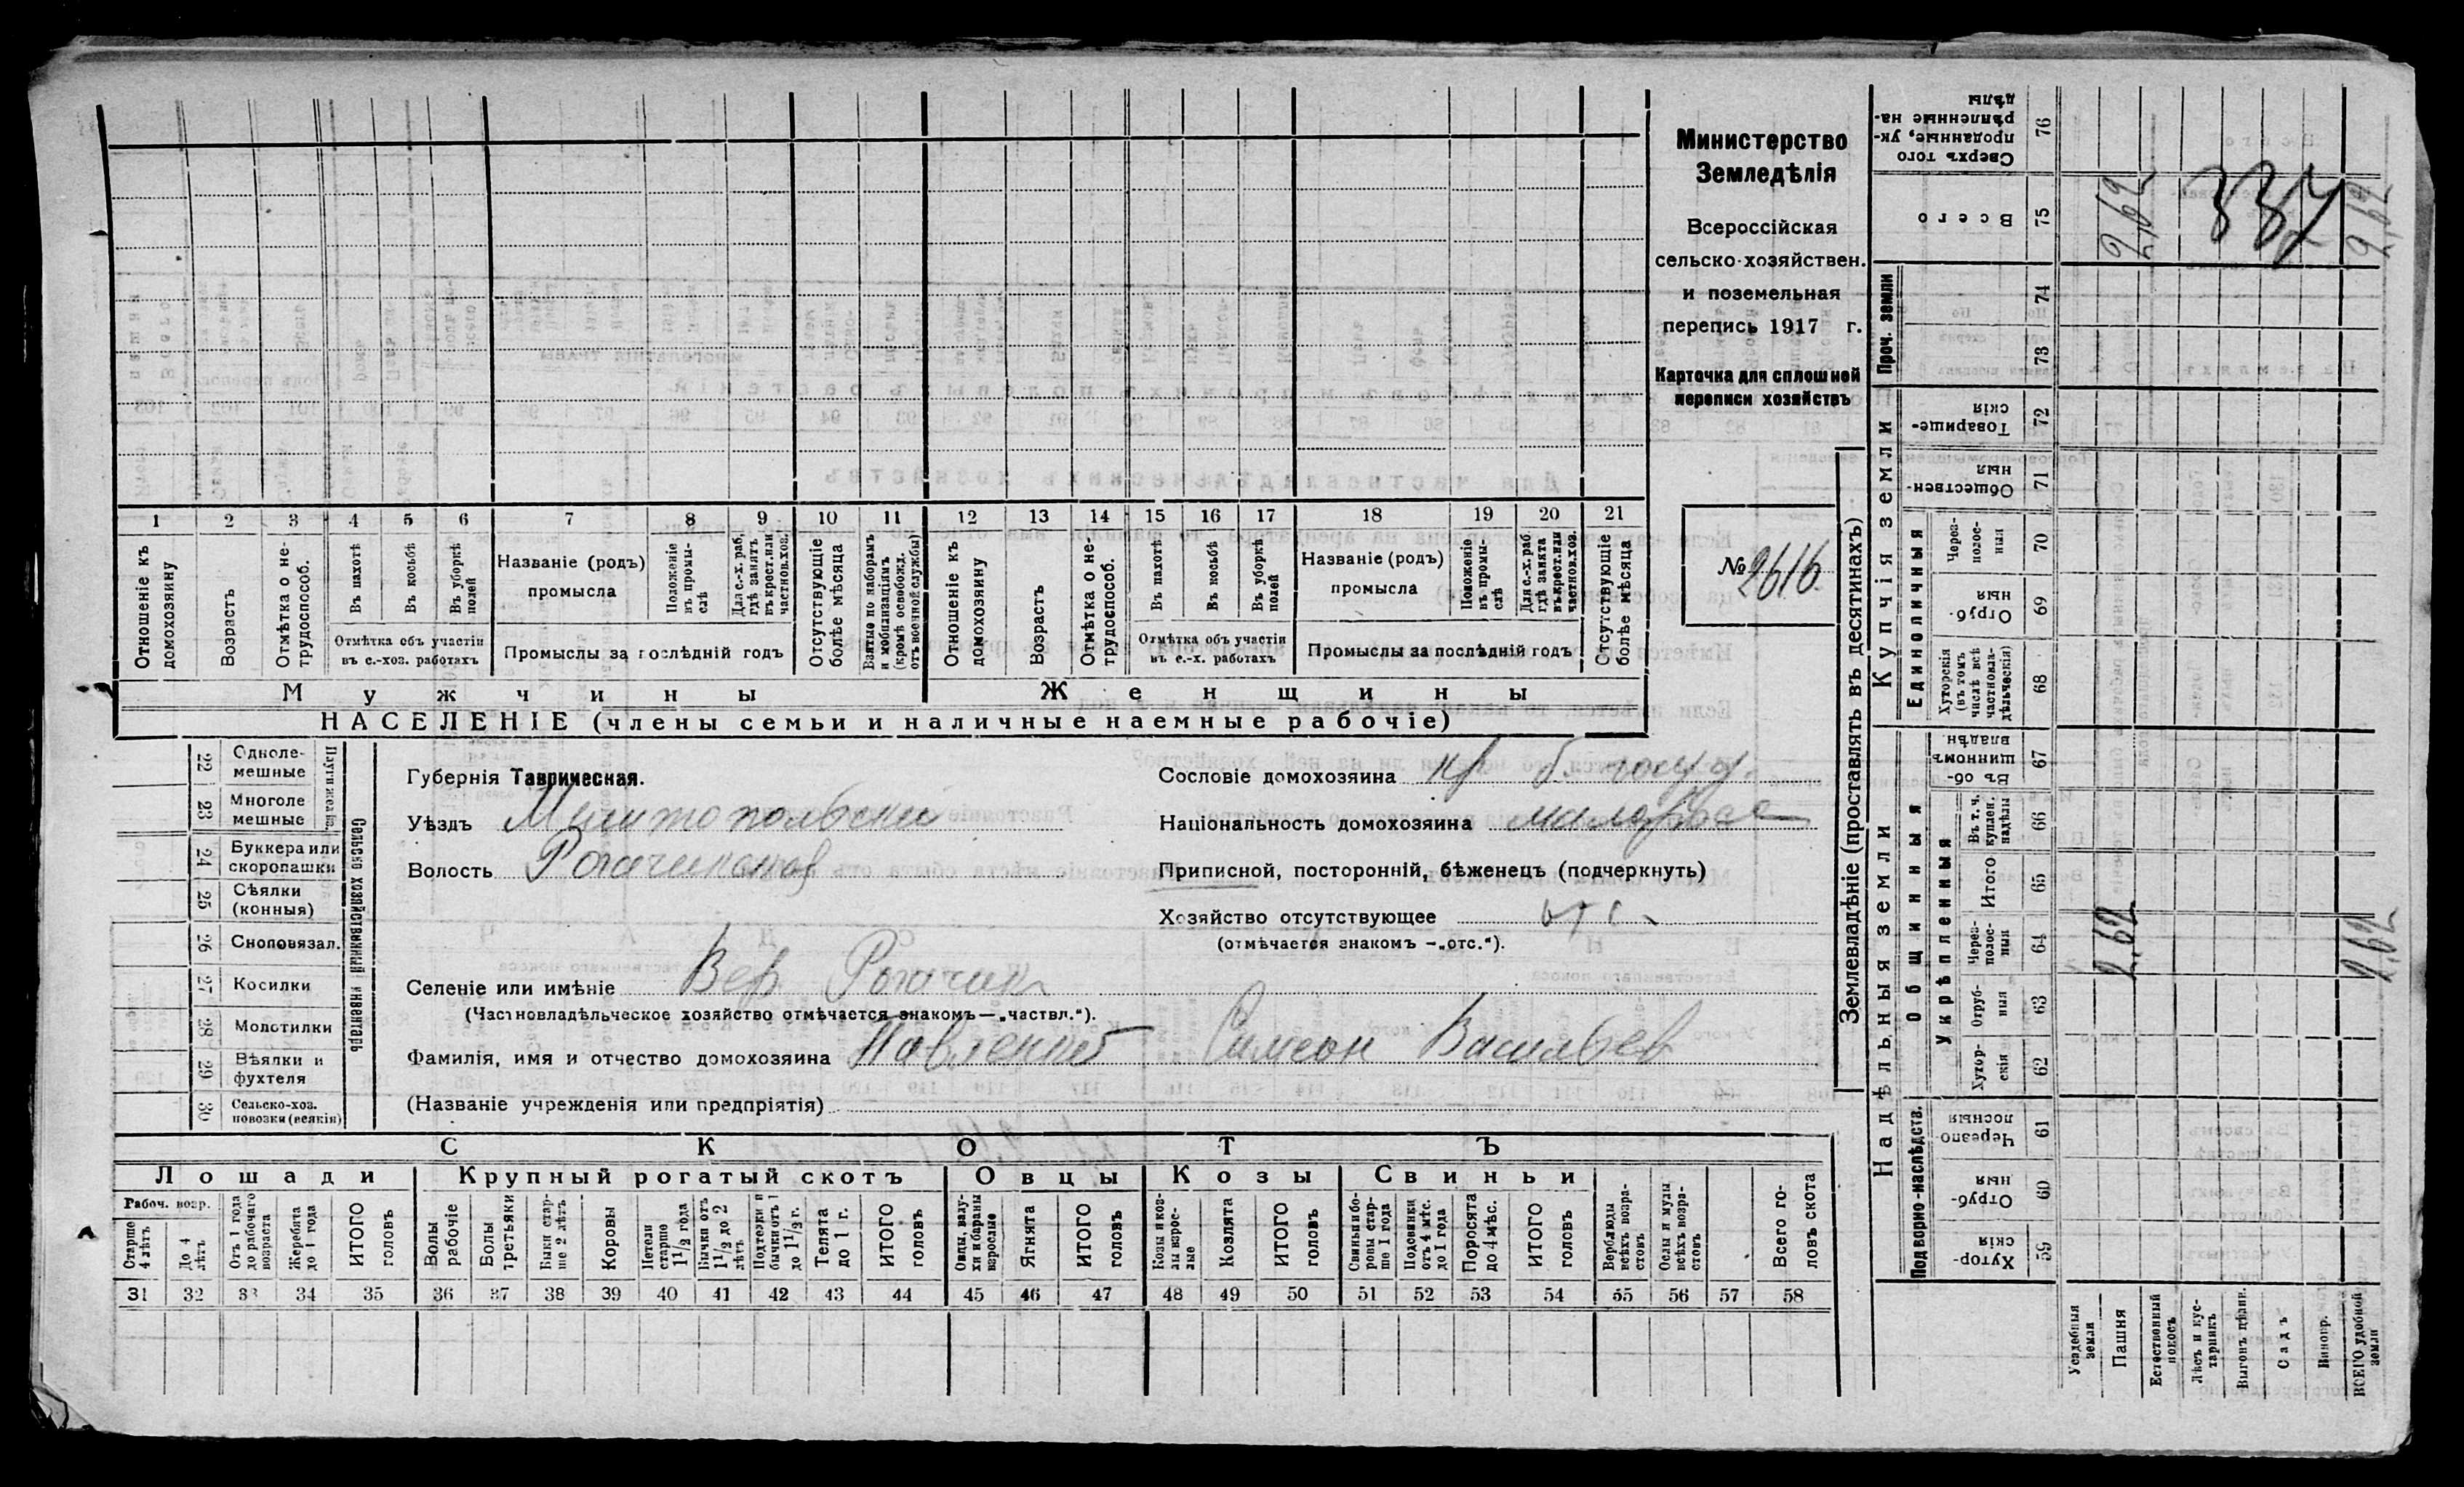 Министерство
Земледѣлія
Всероссійская
сельско-хозяйствен.
и поземельная
перепись 1917 г.
Карточка для сплошной
переписи хозяйствъ
№ 2616
1 2 3 4 5 6 7 8 9 10 11 12 13 14 15 16 17 18 19 20 21
Отношеніе къ домохозяину
Возрастъ
Отмѣтка о не-трудоспособ.
Въ пахотѣ
Въ косьбѣ
Въ уборкѣ полей
Отмѣтка объ участіи въ с.-хоз. работахъ
Названіе (родъ) промысла
Положеніе въ промы-слѣ
Для с.-х. раб. гдѣ занятъ въ крест. или частнов. хоз.
Промыслы за послѣдній годъ
Отсутствующіе болѣе мѣсяца
Взятые по наборамъ и мобилизаціямъ (кромѣ освобожд. отъ военной службы)
Отношеніе къ домохозяину
Возрастъ
Отмѣтка о не-трудоспособ.
Въ пахотѣ
Въ косьбѣ
Въ уборкѣ полей
Отмѣтка объ участіи въ с.-х. работахъ
Названіе (родъ) промысла
Положеніе въ промы-слѣ
Для с.-х. раб. гдѣ занята въ крест. или частнов. хоз.
Промыслы за послѣдній годъ
Отсутствующіе болѣе мѣсяца
Мужчины Женщины
НАСЕЛЕНІЕ (члены семьи и наличные наемные рабочіе)
22 Одноле-мешные
23 Многоле мешные
24 Буккера или скоропашки
25 Сѣялки (конныя)
26 Сноповязал.
27 Косилки
28 Молотилки
29 Вѣялки и фухтеля
30 Сельско-хоз. повозки (всякія)
Сельско хозяйственный инвентарь
Губернія Таврическая.
Уѣздъ Мелитопольский
Волость
Сословіе домохозяина кр б. госуд.
Національность домохозяина малоросс
Приписной, посторонній, бѣженецъ (подчеркнуть)
Хозяйство отсутствующее отс.
(отмѣчается знакомъ —„отс.“).
Селеніе или имѣніе Вер Рогачик
(Частновладѣльческое хозяйство отмѣчается знакомъ—„частвл.“).
Фамилія, имя и отчество домохозяина Павленко Симеон Васильев
(Названіе учрежденія или предпріятія)
СКОТЪ
Лошади Крупный рогатый скотъ Овцы Козы Свиньи
Рабоч. возр.
Старше 4 лѣтъ
До 4 лѣтъ
Отъ 1 года до рабочаго возраста
Жеребята до 1 года
ИТОГО головъ
Волы рабочіе
Волы третьяки
Быки стар-ше 2 лѣтъ
Коровы
Нетели старше 1½ года
Бычки отъ 1½ до 2 лѣтъ
Подтелки и бычки отъ 1 до 1½ г.
Телята до 1 г.
ИТОГО головъ
Овцы, валу-хи и бараны взрослые
Ягнята
ИТОГО головъ
Козы и коз-лы взрос-лые
Козлята
ИТОГО головъ
Свиньи и бо-ровы стар-ше 1 года
Подсвинки отъ 4 мѣс. до 1 года
Поросята до 4 мѣс.
ИТОГО головъ
Верблюды всѣхъ возра-стовъ
Ослы и мулы всѣхъ возра-стовъ
Всего го-ловъ скота
31 32 33 34 35 36 37 38 39 40 41 42 43 44 45 46 47 48 49 50 51 52 53 54 55 56 57 58
Землевладѣніе (проставлять въ десятинахъ)
Сверхъ того проданные, ук-рѣпленные на-дѣлы 76
Всего 75 2,62 337 2,62
Проч. земли 74 73
Купчія земли
Товарище-скія 72
Обществен-ныя 71
Единоличныя
Через-полос-ныя 70
Отруб-ныя 69
Хуторскія (въ томъ числѣ всѣ частновла-дѣльческія) 68
Надѣльныя земли
Общинныя
Въ об-щинномъ владѣн. 67
Укрѣпленныя
Въ т. ч. куплен. надѣлы 66
Итого 65
Через-полос-ныя 64 2,62 2,62
Отруб-ныя 63
Хутор-скія 62
Подворно-наслѣдств.
Черезпо-лосныя 61
Отруб-ныя 60
Хутор-скія 59
Усадебныя земли
Пашня
Естественный покосъ
Лѣсъ и кус-тарникъ
Выгонъ цѣлин.
Садъ
Виногр.
ВСЕГО удобной земли